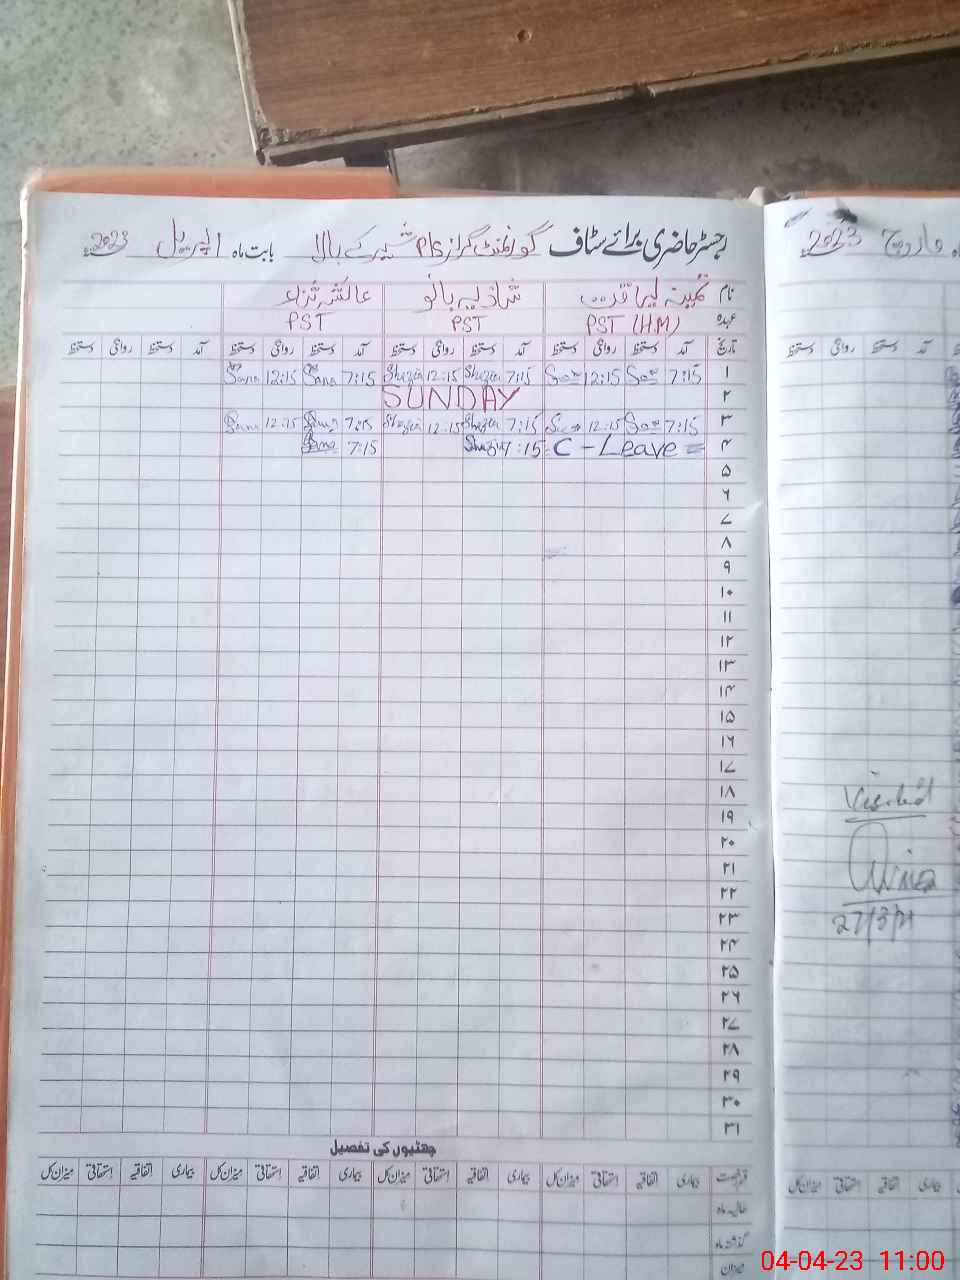 رجسٹر حاضری برائے سٹاف گورنمنٹ گرلز شیر کے بالا بابت ماہ اپریل 2023
نام ثمینہ لیاقت شازیہ بانو
عہدہ PST (HM) PST PST
تاریخ آمد دستخط روانگی دستخط آمد دستخط روانگی دستخط آمد دستخط روانگی دستخط آمد دستخط روانگی دستخط
۱ 7:15 12:15 7:15 Shazia 12:15 Shazia 7:15 Sana 12:15 Sana
۲ SUNDAY
۳ 7:15 12:15 7:15 Shazia 12:15 Shazia 7:15 Sana 12:15 Sana
۴ C - Leave 7:15 Shazia 7:15 Sana
۵
۶
۷
۸
۹
۱۰
۱۱
۱۲
۱۳
۱۴
۱۵
۱۶
۱۷
۱۸
۱۹
۲۰
۲۱
۲۲
۲۳
۲۴
۲۵
۲۶
۲۷
۲۸
۲۹
۳۰
۳۱
چھٹیوں کی تفصیل
قسم رخصت بیماری اتفاقیہ استحقاقی میزان کل بیماری اتفاقیہ استحقاقی میزان کل بیماری اتفاقیہ استحقاقی میزان کل بیماری اتفاقیہ استحقاقی میزان کل
حالیہ ماہ
گذشتہ ماہ
میزان
مارچ 2023
Visited
بیماری اتفاقیہ استحقاقی میزان کل
04-04-23 11:00